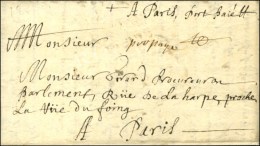 + A Paris, Port Paié
A Monsieur
Monsieur procureur au
Parlement, Rüe De La harpe, proche
La Rüe du foing
A Paris